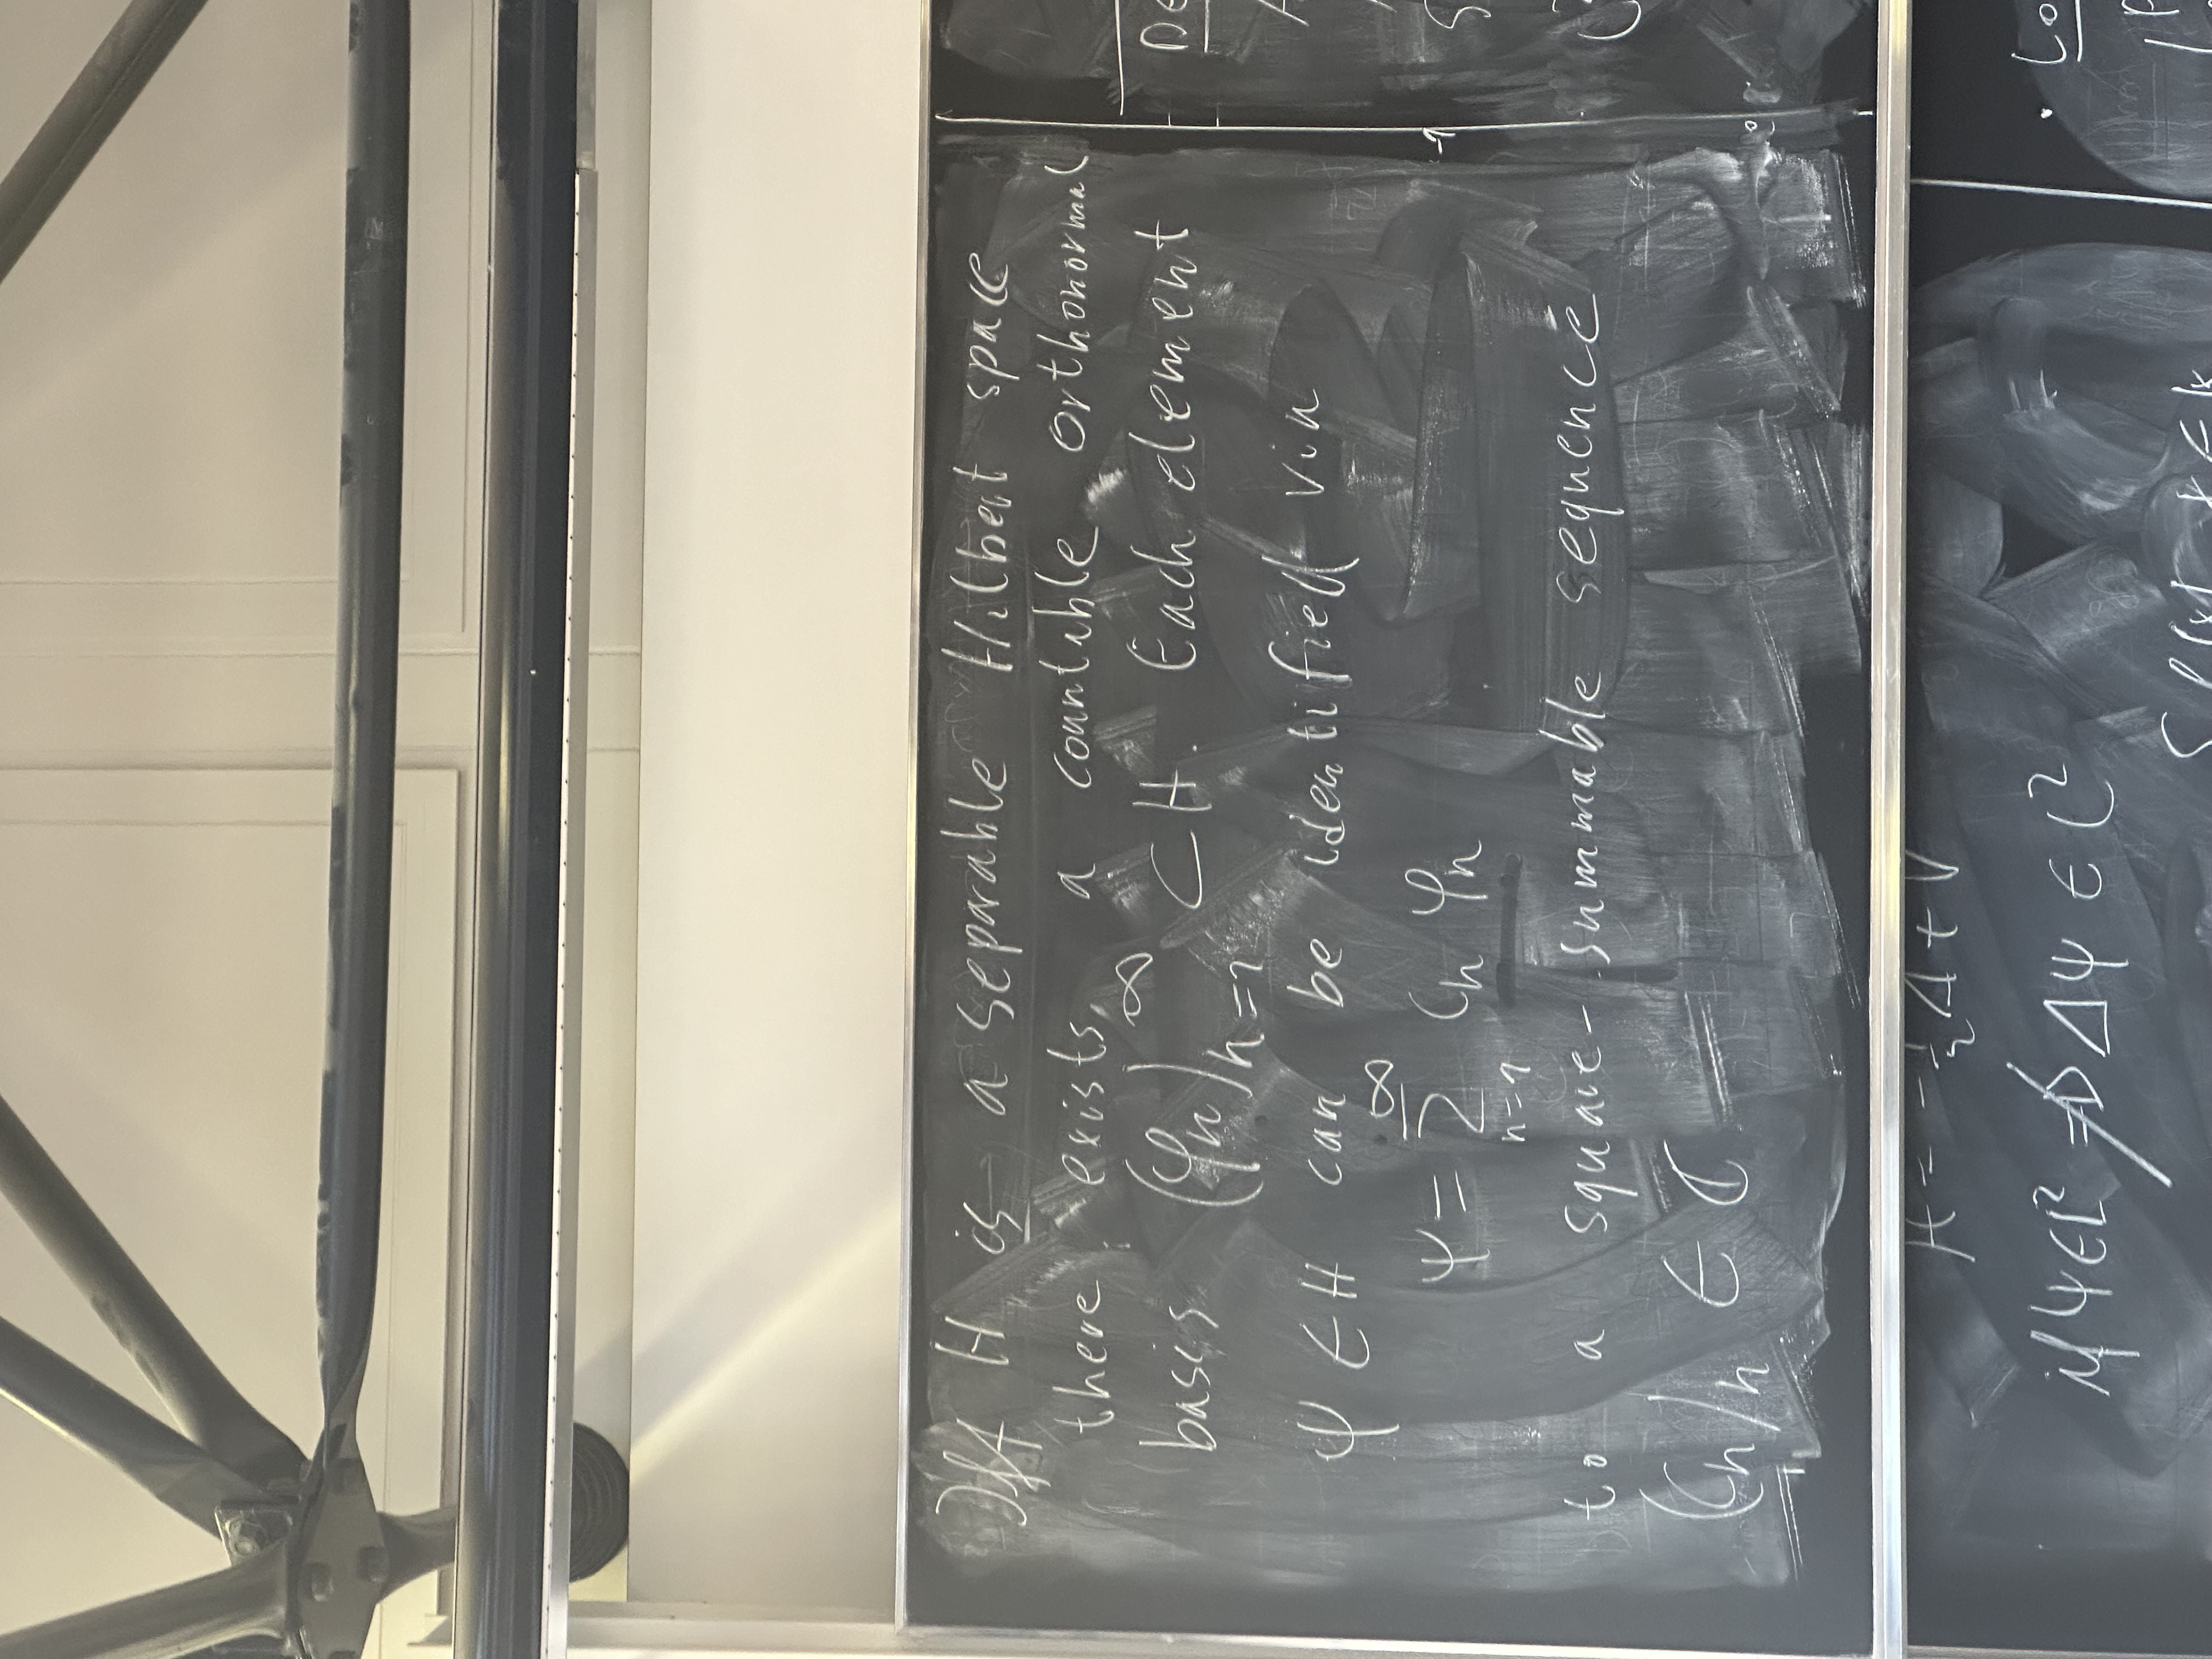 Def H is a separable Hilbert space
there exists a countable orthonormal
basis (φn)n=1^∞ ⊂ H. Each element
ψ ∈ H can be identified via
ψ = ∑n=1^∞ cn φn
to a square-summable sequence
(cn)n ∈ ℂ
H = -½Δ + V
if ψ ∈ L² ⇏ Δψ ∈ L²